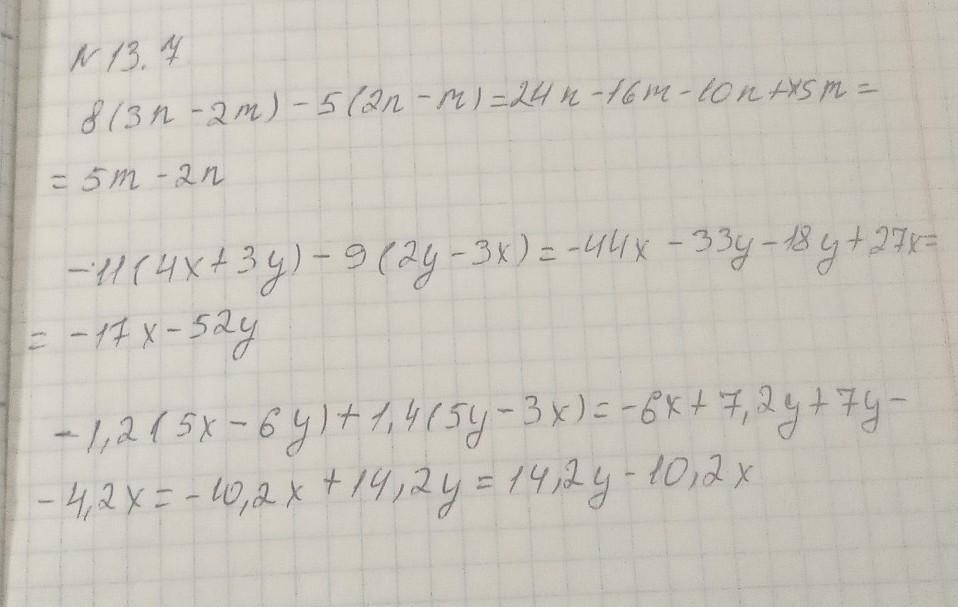 N 13.7
8(3n-2m)-5(2n-m)=24n-16m-10n+5m=
=5m-2n
-11(4x+3y)-9(2y-3x)=-44x-33y-18y+27x=
=-17x-52y
-1,2(5x-6y)+1,4(5y-3x)=-6x+7,2y+7y-
-4,2x=-10,2x+14,2y=14,2y-10,2x